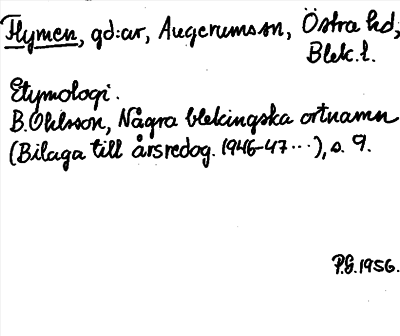 Flymen, gd:ar, Augerums sn, Östra hd,
Blek. l.
Etymologi.
B. Ohlsson, Några blekingska ortnamn
(Bilaga till årsredog. 1946-47 ...), s. 9.
P.G. 1956.